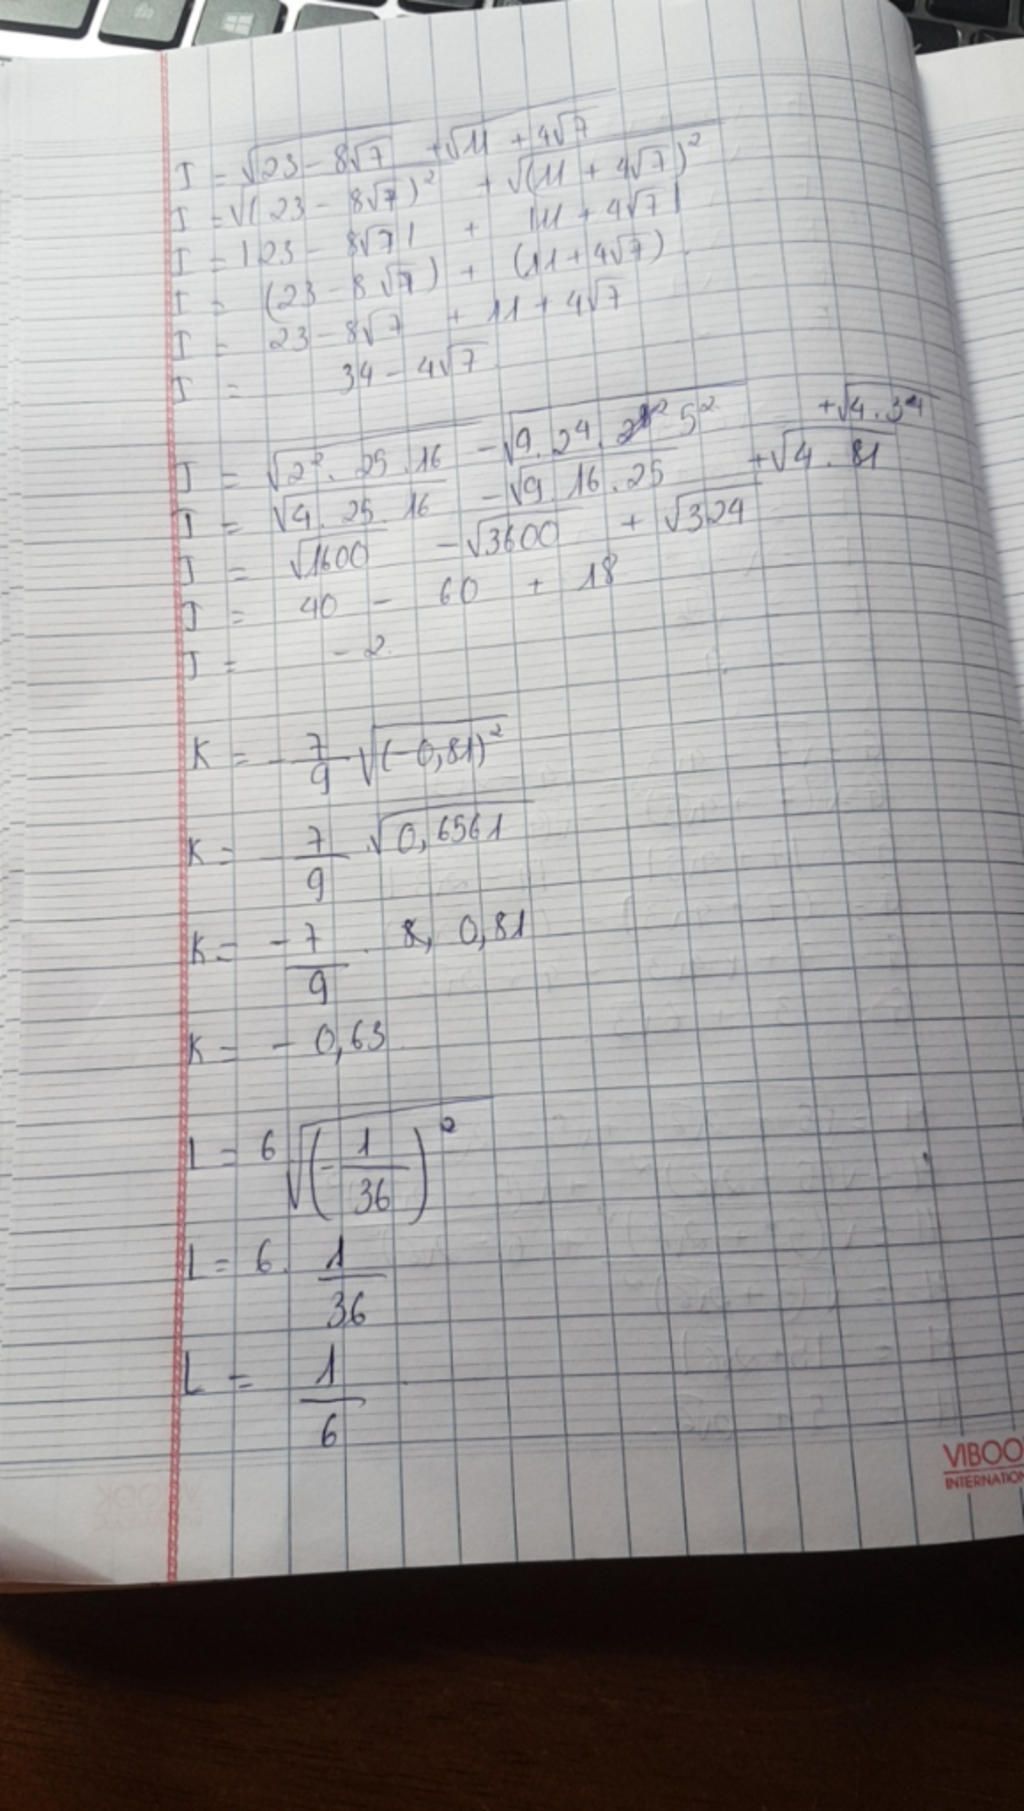 I = √23 - 8√7 + √11 + 4√7
I = √(23 - 8√7)² + √(11 + 4√7)²
I = |23 - 8√7| + |11 + 4√7|
I = (23 - 8√7) + (11 + 4√7)
I = 23 - 8√7 + 11 + 4√7
I = 34 - 4√7
J = √2² . 25 . 16 - √9 . 2⁴ . 5² + √4 . 3⁴
J = √4 . 25 . 16 - √9 . 16 . 25 + √4 . 81
J = √1600 - √3600 + √324
J = 40 - 60 + 18
J = -2
K = -7/9 √(-0,81)²
K = -7/9 . √0,6561
K = -7/9 . 0,81
K = - 0,63
L = 6 √(-1/36)²
L = 6 . 1/36
L = 1/6
VIBOO
INTERNATION